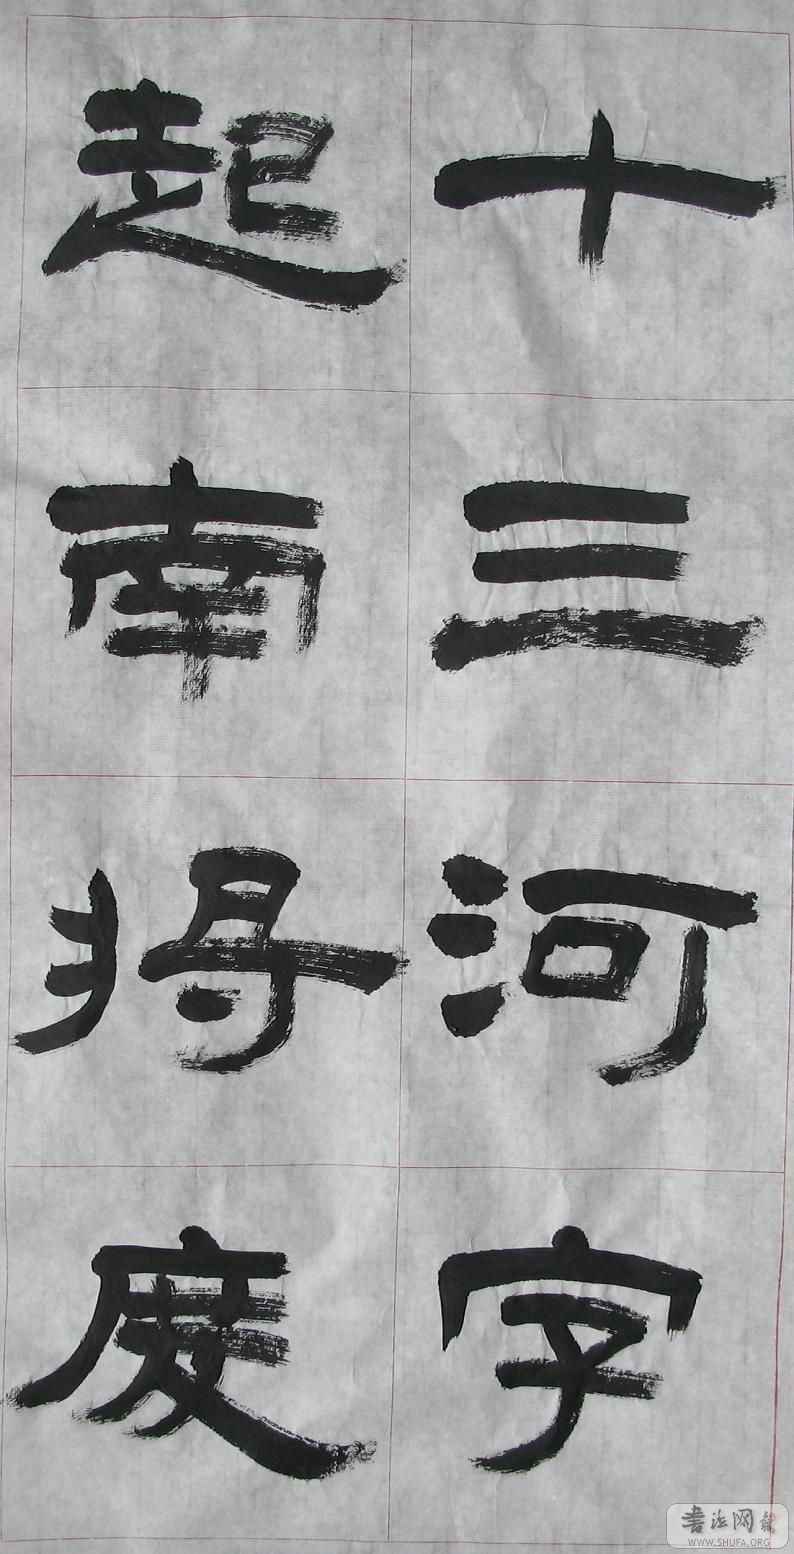 十三河字
起南将度
書法网
WWW.SHUFA.ORG